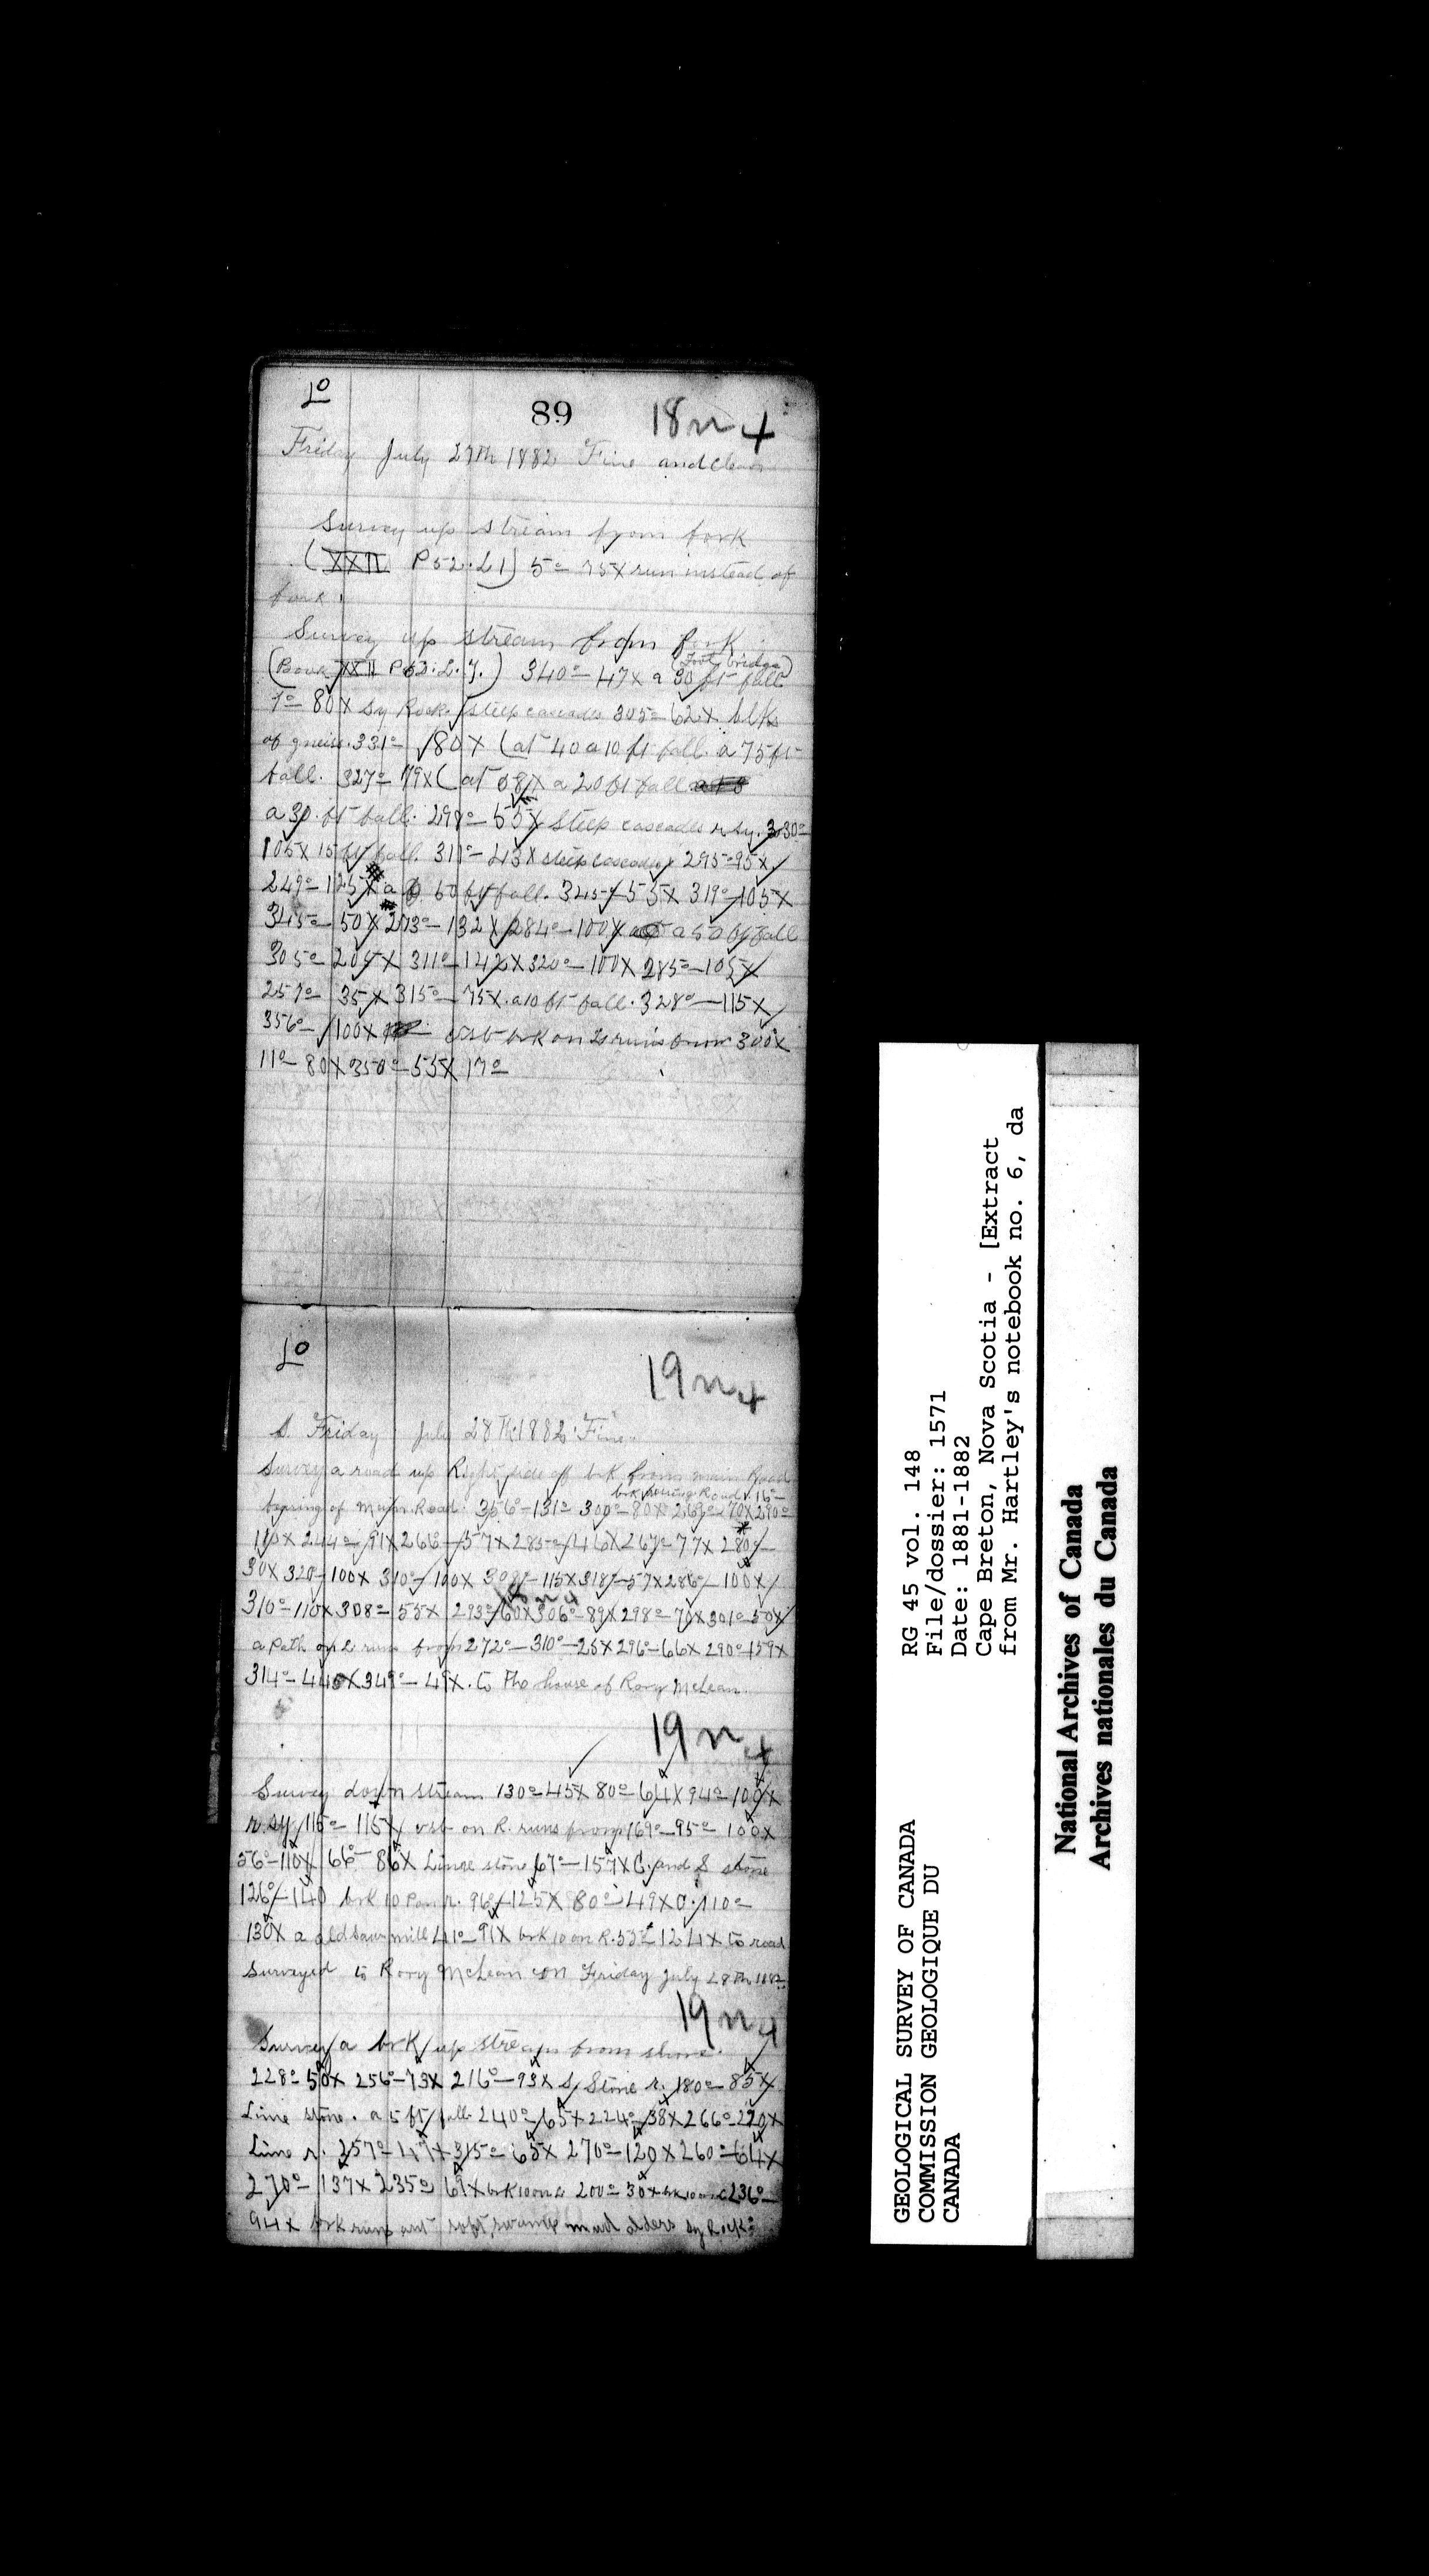 L°
89
18 n 4
Friday July 27th 1882 Fine and clear
Survey up stream from fork
(XXII P 52. L 1) 5° 75X run instead of
fork.
Survey up stream from fork
(Foot bridge)
(Book XXII P 53. L. 7.) 340° 47X a 30 ft fall
7° 80X Sy Rock. steep cascades 305° 62X blks
of gneiss. 331° 80X (at 40 a 10 ft fall. a 75 ft
fall. 327° 79X (at 58X a 20 ft fall
a 30 ft fall. 298° 55X steep cascades r sy. 330°
105X 15 ft fall. 311° 43X steep cascades 295° 95X
249° 125X a 60 ft fall. 345° 55X 319° 105X
345° 50X 273° 132X 284° 100X a 50 ft fall
305° 205X 311° 142X 320° 100X 285° 105X
257° 35X 315° 75X. a 10 ft fall. 328° 115X
356° 100X brk on L runs from 300X
11° 80X 350° 55X 17°
L°
19 n 4
Friday July 28th 1882 Fine
Survey a road up Right side off brk from main Road
brk Road 16°
bearing of Main Road. 356° 131° 300° 80X 263° 70X 290°
110X 244° 91X 266° 57X 285° 46X 267° 77X 280°
30X 320° 100X 310° 100X 308° 115X 318° 57X 286° 100X
310° 110X 308° 55X 293° 60X 306° 89X 298° 70X 301° 50X
a Path on L runs from 272° 310° 25X 296° 66X 290° 159X
314° 445X 349° 49X. to the house of Rory McLean.
19 n 4
Survey down stream 130° 45X 80° 64X 94° 100X
r sy 115° 115X on R. runs from 169° 95° 100X
56° 110X 66° 86X Lime stone 67° 157X C. and S stone
126° 140 brk 10 on R. 96° 125X 80° 49X 110°
130X a old saw mill 41° 91X brk 10 on R. 55° 124X to road
surveyed to Rory McLean on Friday July 28th 1882
19 n 4
Survey a brk up stream from shore.
228° 50X 256° 73X 216° 93X S, Stone r. 180° 85X
Lime stone. a 5 ft fall 240° 65X 224° 38X 266° 220X
Lime r. 257° 147X 315° 65X 270° 120X 260° 64X
270° 137X 235° 69X brk 10 on L 200° 30X brk 10 on L 236°
94X brk runs out soft swamp mud alders sy Rock
GEOLOGICAL SURVEY OF CANADA
COMMISSION GEOLOGIQUE DU
CANADA
RG 45 vol. 148
File/dossier: 1571
Date: 1881-1882
Cape Breton, Nova Scotia - [Extract
from Mr. Hartley's notebook no. 6, da
National Archives of Canada
Archives nationales du Canada